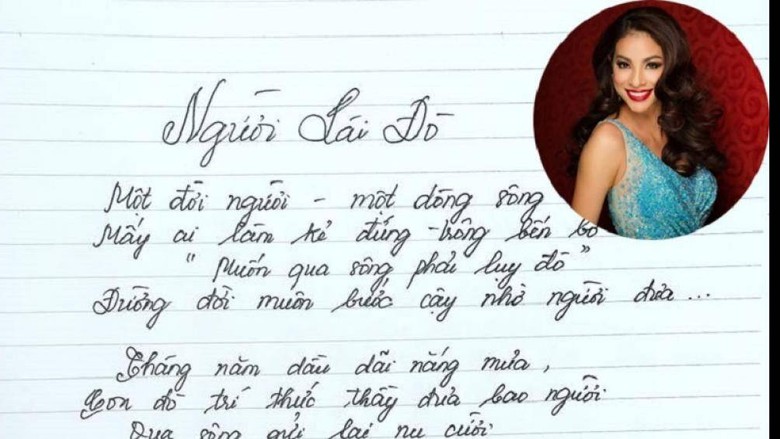 Người Lái Đò
Một đời người – một dòng sông
Mấy ai làm kẻ đứng trông bến bờ
"Muốn qua sông phải lụy đò"
Đường đời muôn bước cậy nhờ người đưa...
Tháng năm dầu dãi nắng mưa,
Con đò trí thức thầy đưa bao người
Qua sông gửi lại nụ cười